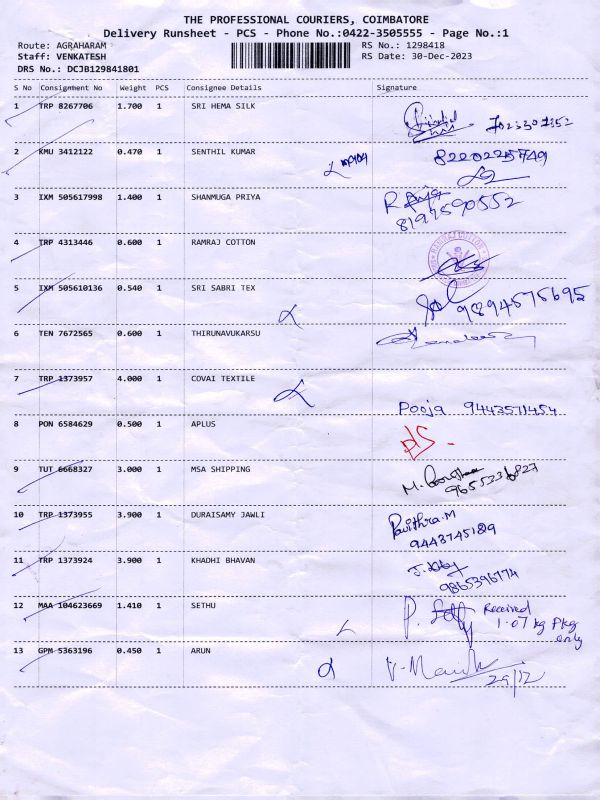 THE PROFESSIONAL COURIERS, COIMBATORE
Delivery Runsheet - PCS - Phone No.:0422-3505555 - Page No.:1
Route: AGRAHARAM RS No.: 1298418
Staff: VENKATESH RS Date: 30-Dec-2023
DRS No.: DCJB129841801
S No Consignment No Weight PCS Consignee Details Signature
1 TRP 8267706 1.700 1 SRI HEMA SILK
2 KMU 3412122 0.470 1 SENTHIL KUMAR 8220225749
3 IXM 505617998 1.400 1 SHANMUGA PRIYA R
8197590552
4 TRP 4313446 0.600 1 RAMRAJ COTTON
RAMRAJ COTTON
5 IXM 505610136 0.540 1 SRI SABRI TEX 9894575695
6 TEN 7672565 0.600 1 THIRUNAVUKARSU
7 TRP 1373957 4.000 1 COVAI TEXTILE
Pooja 9443571454
8 PON 6584629 0.500 1 APLUS
9 TUT 6668327 3.000 1 MSA SHIPPING
M.
10 TRP 1373955 3.900 1 DURAISAMY JAWLI Pavithra.M
9443745189
11 TRP 1373924 3.900 1 KHADHI BHAVAN J.
9865396774
12 MAA 104623669 1.410 1 SETHU P. Received
1.07 kg Pkg
only
13 GPM 5363196 0.450 1 ARUN
29/12